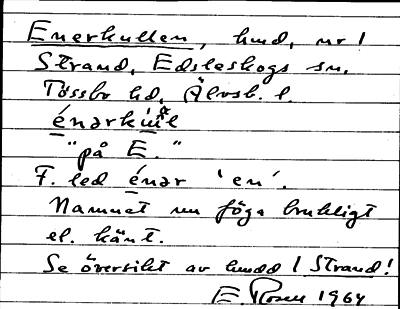 Enerkullen, hmd, nr 1
Strand, Edsleskogs sn,
Tössbo hd, Älvsb. l.
énərkul
"på E."
F. led énər 'en'.
Namnet nu föga brukligt
el. känt.
Se översikt av hmdd / Strand!
E Rosen 1964